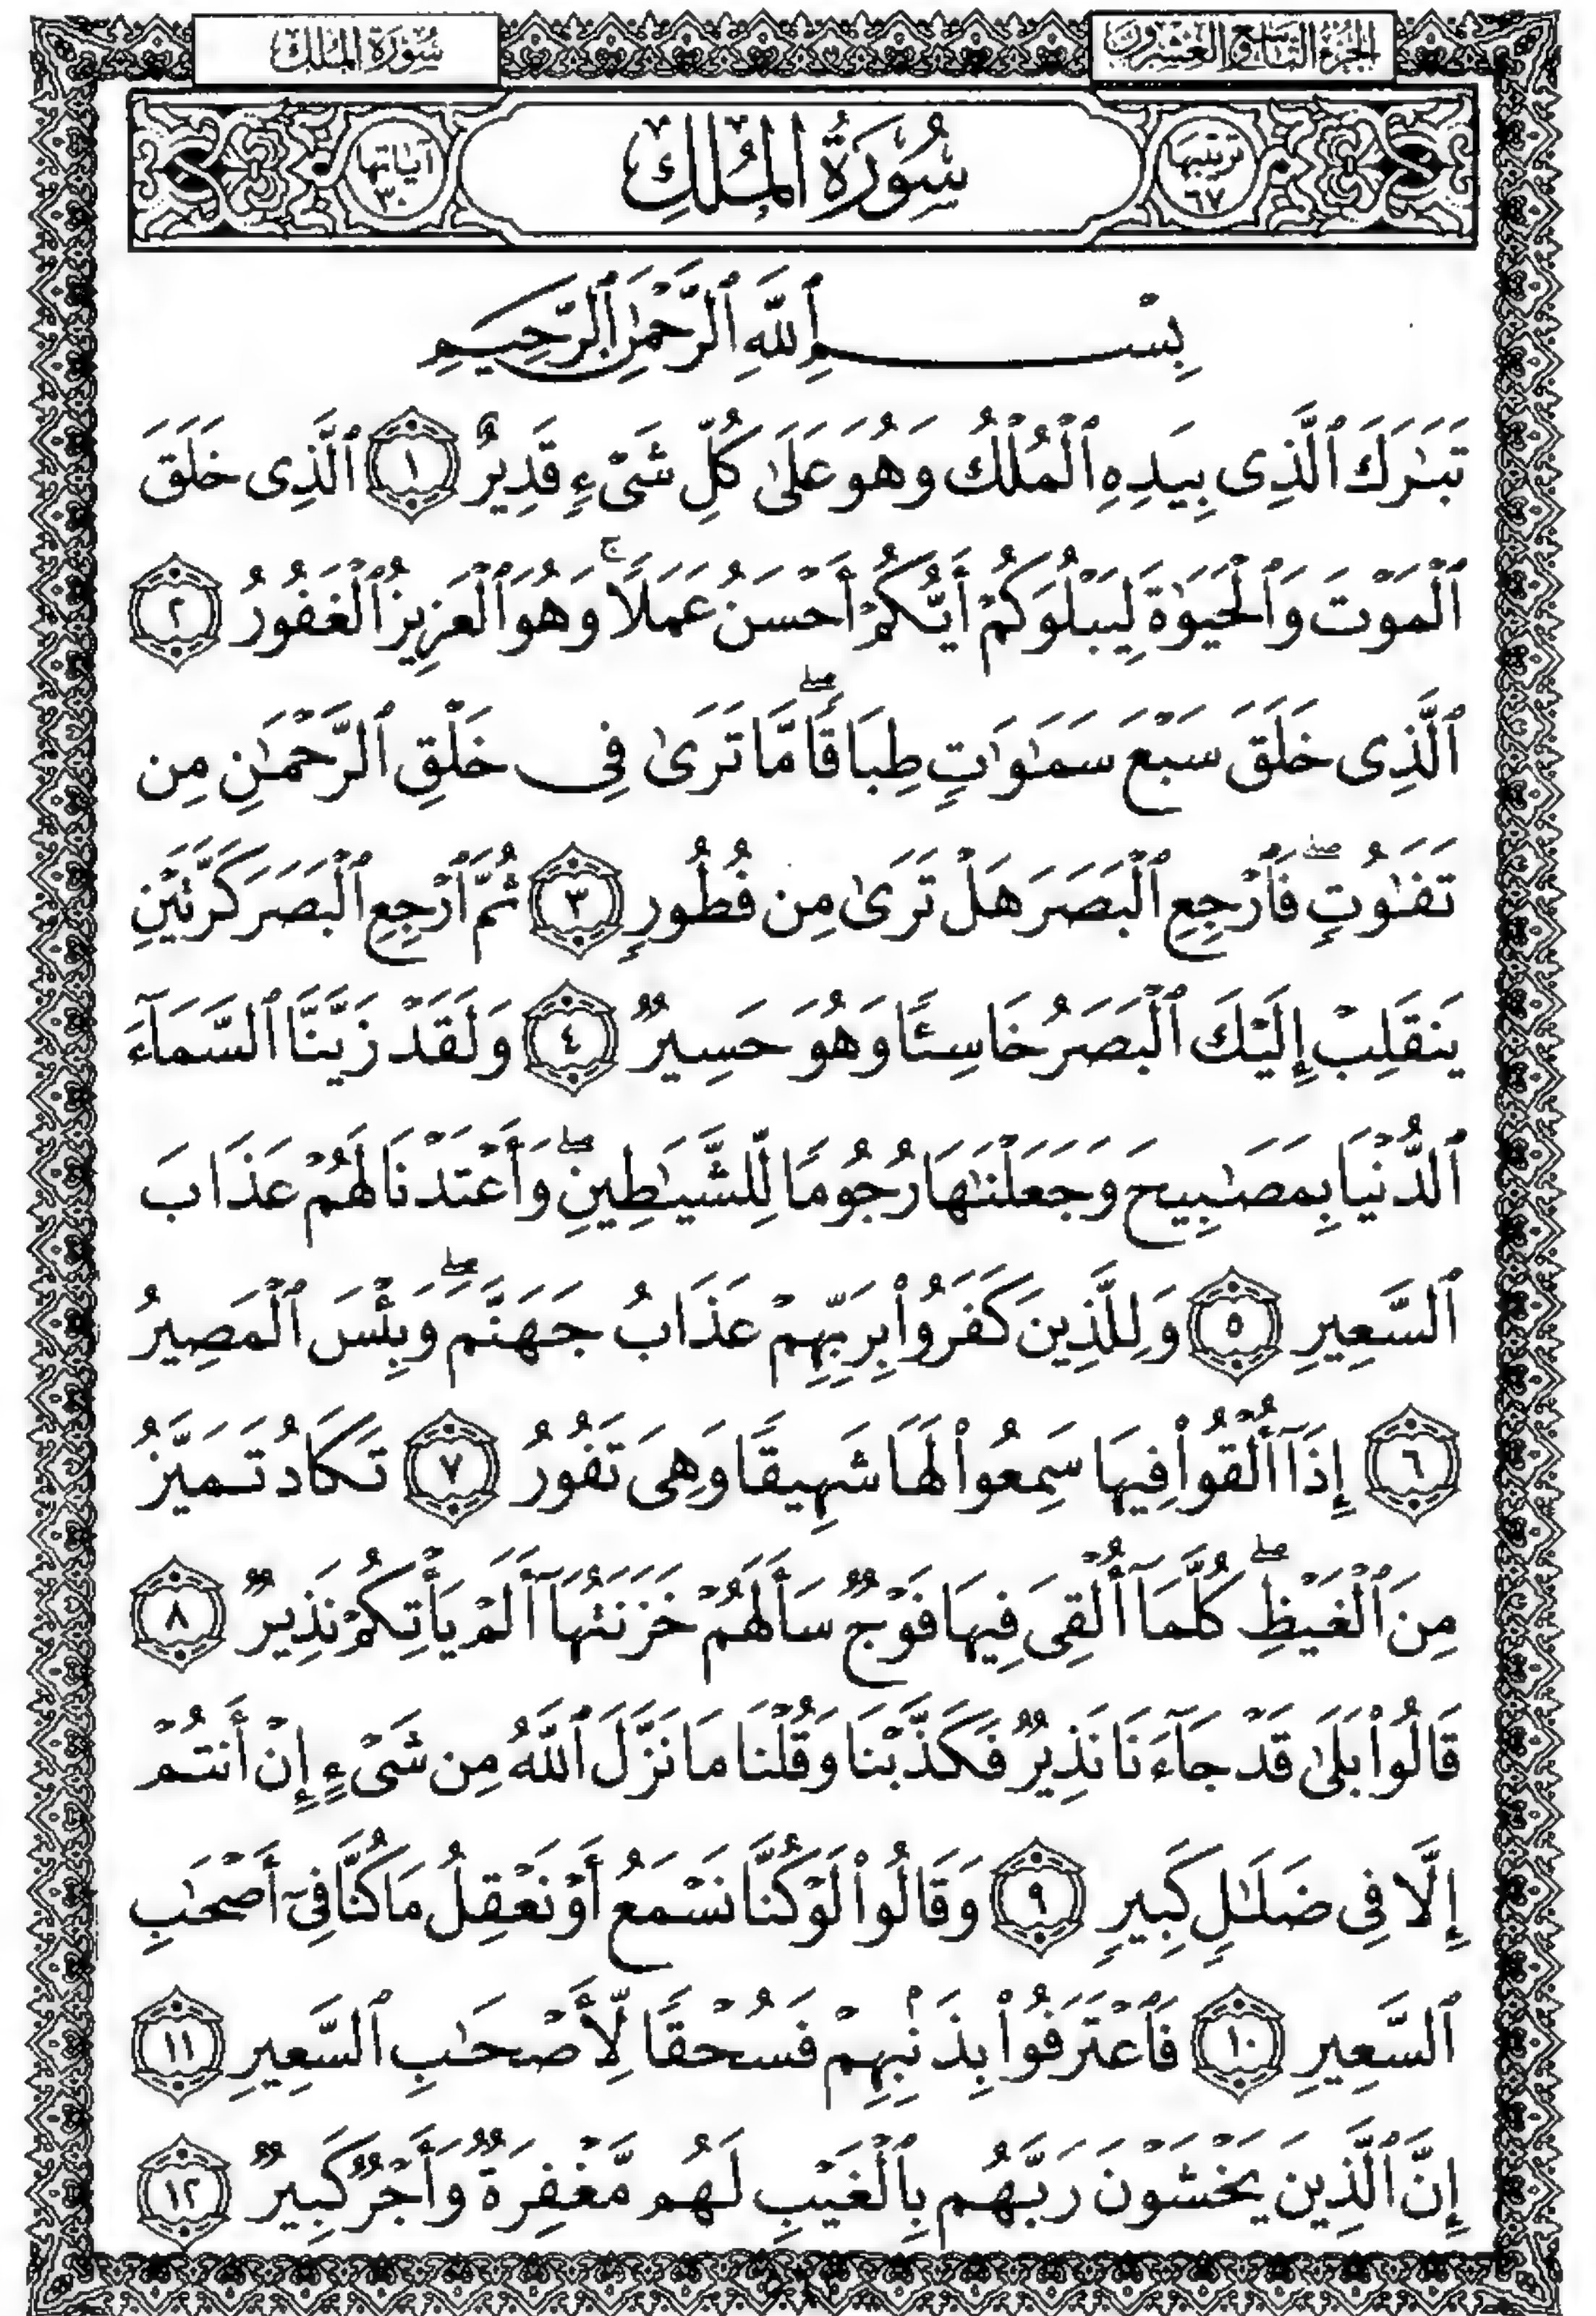 الجزء التاسع والعشرون
سورة الملك
ترتيبها ٦٧
سُورَةُ المُلكِ
آياتها ٣٠
بِسْمِ ٱللَّهِ ٱلرَّحْمَٰنِ ٱلرَّحِيمِ
تَبَٰرَكَ ٱلَّذِى بِيَدِهِ ٱلْمُلْكُ وَهُوَ عَلَىٰ كُلِّ شَىْءٍ قَدِيرٌ ١ ٱلَّذِى خَلَقَ
ٱلْمَوْتَ وَٱلْحَيَوٰةَ لِيَبْلُوَكُمْ أَيُّكُمْ أَحْسَنُ عَمَلًا ۚ وَهُوَ ٱلْعَزِيزُ ٱلْغَفُورُ ٢
ٱلَّذِى خَلَقَ سَبْعَ سَمَٰوَٰتٍ طِبَاقًا ۖ مَّا تَرَىٰ فِى خَلْقِ ٱلرَّحْمَٰنِ مِن
تَفَٰوُتٍ ۖ فَٱرْجِعِ ٱلْبَصَرَ هَلْ تَرَىٰ مِن فُطُورٍ ٣ ثُمَّ ٱرْجِعِ ٱلْبَصَرَ كَرَّتَيْنِ
يَنقَلِبْ إِلَيْكَ ٱلْبَصَرُ خَاسِئًا وَهُوَ حَسِيرٌ ٤ وَلَقَدْ زَيَّنَّا ٱلسَّمَآءَ
ٱلدُّنْيَا بِمَصَٰبِيحَ وَجَعَلْنَٰهَا رُجُومًا لِّلشَّيَٰطِينِ ۖ وَأَعْتَدْنَا لَهُمْ عَذَابَ
ٱلسَّعِيرِ ٥ وَلِلَّذِينَ كَفَرُوا۟ بِرَبِّهِمْ عَذَابُ جَهَنَّمَ ۖ وَبِئْسَ ٱلْمَصِيرُ
٦ إِذَآ أُلْقُوا۟ فِيهَا سَمِعُوا۟ لَهَا شَهِيقًا وَهِىَ تَفُورُ ٧ تَكَادُ تَمَيَّزُ
مِنَ ٱلْغَيْظِ ۖ كُلَّمَآ أُلْقِىَ فِيهَا فَوْجٌ سَأَلَهُمْ خَزَنَتُهَآ أَلَمْ يَأْتِكُمْ نَذِيرٌ ٨
قَالُوا۟ بَلَىٰ قَدْ جَآءَنَا نَذِيرٌ فَكَذَّبْنَا وَقُلْنَا مَا نَزَّلَ ٱللَّهُ مِن شَىْءٍ إِنْ أَنتُمْ
إِلَّا فِى ضَلَٰلٍ كَبِيرٍ ٩ وَقَالُوا۟ لَوْ كُنَّا نَسْمَعُ أَوْ نَعْقِلُ مَا كُنَّا فِىٓ أَصْحَٰبِ
ٱلسَّعِيرِ ١٠ فَٱعْتَرَفُوا۟ بِذَنۢبِهِمْ فَسُحْقًا لِّأَصْحَٰبِ ٱلسَّعِيرِ ١١
إِنَّ ٱلَّذِينَ يَخْشَوْنَ رَبَّهُم بِٱلْغَيْبِ لَهُم مَّغْفِرَةٌ وَأَجْرٌ كَبِيرٌ ١٢